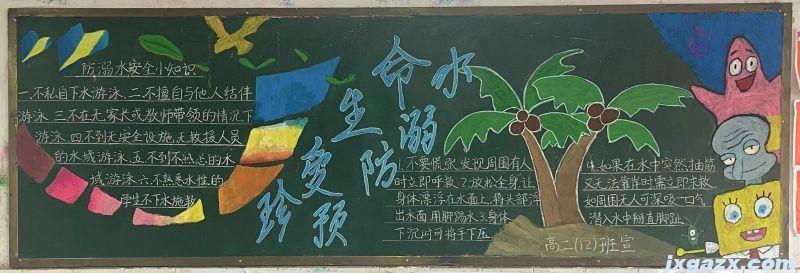 防溺水安全小知识
一.不私自下水游泳.二不擅自与他人结伴
游泳.三不在无家长或教师带领的情况下
游泳.四.不到无安全设施.无救援人员
的水域游泳.五不到不熟悉的水
域游泳.六.不熟悉水性的
学生不下水施救
珍爱生命
预防溺水
1.不要慌张.发现周围有人
时立即呼救.2.放松全身.让
身体漂浮在水面上.将头部浮
出水面.用脚踢水.3.身体
下沉时可将手下压
4.如果在水中突然抽筋
又无法靠岸时需立即求救.
如周围无人可深吸一口气
潜入水中掰直脚趾
高二(12)班宣
jxgazx.com